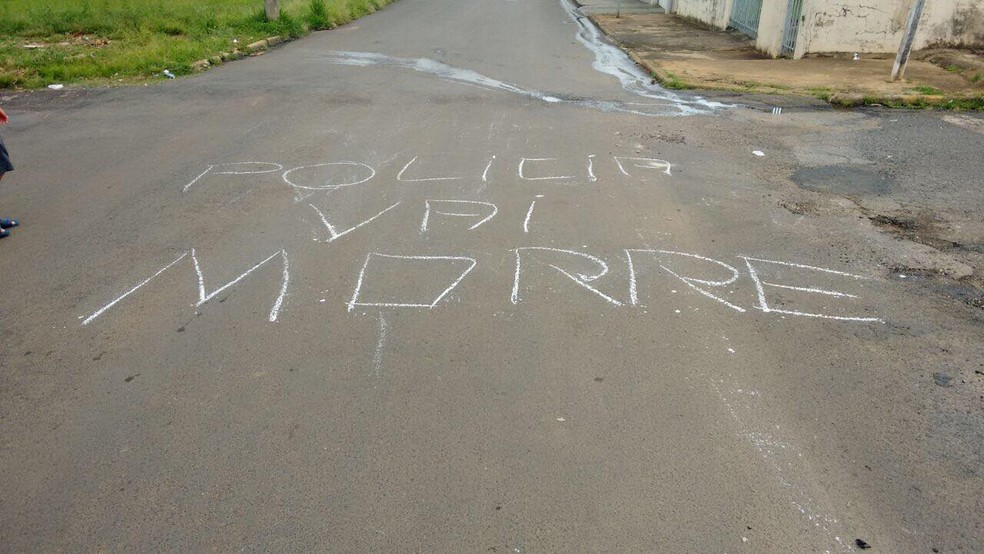 POLICIA
VAI
MORRE